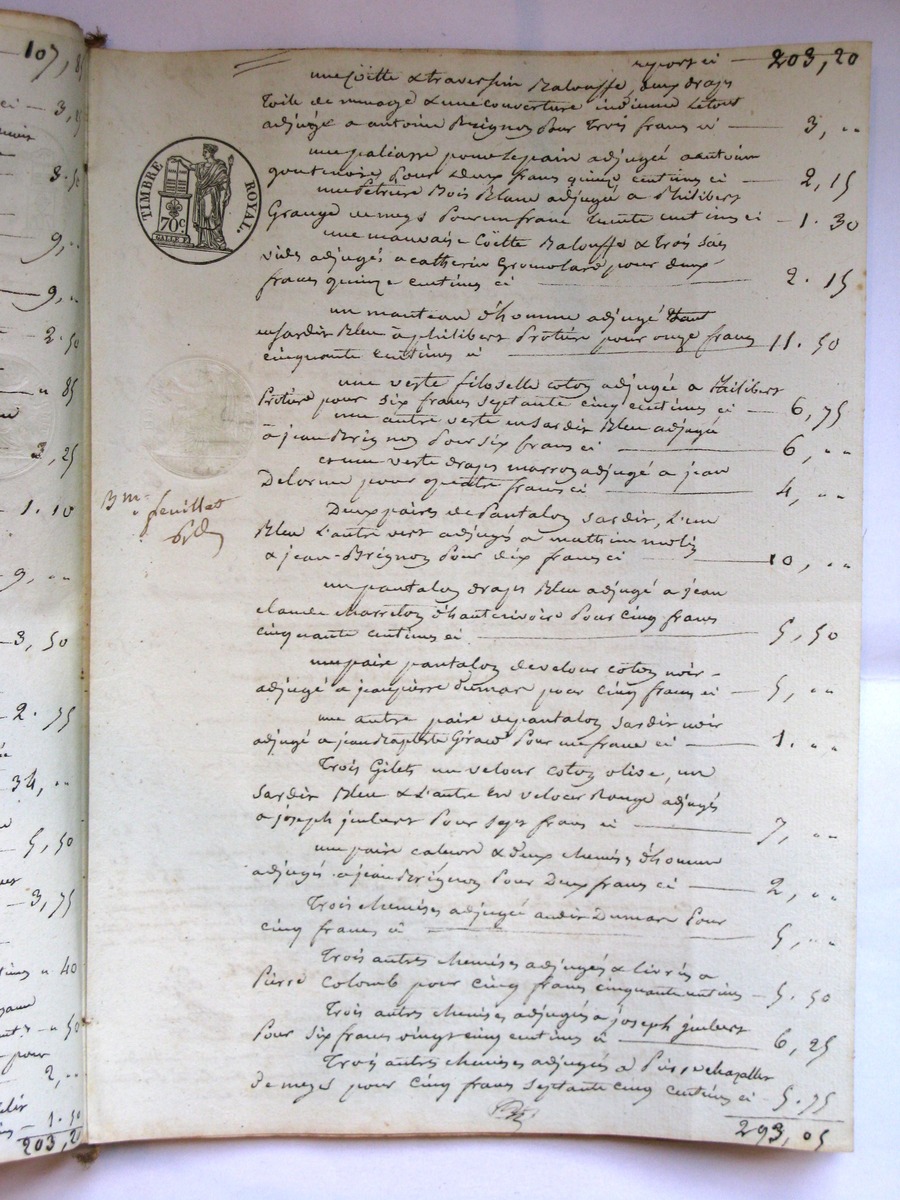 107,85
report ci — 203,20
une Coëtte & traversin Balouffe, deux draps
toile de menage & une couverture indienne le tout
adjugé a antoine Brignon pour trois francs ci — 3, ..
une paliasse pour le paire adjugée a antoine
goutenoire pour deux francs quinze centimes ci — 2,15
une Petriere Bois Blanc adjugée a Philibert
Grange de meys pour un franc trente centimes ci — 1.30
une mauvaise Cöette Balouffe & trois sacs
vides adjugés a catherine Gromolard pour deux
francs quinze centimes ci — 2.15
un manteau d'homme adjugé
en sardis Bleu à philibert Protiere pour onze francs
cinquante centimes ci — 11.50
une veste filoselle coton adjugée a Philibert
Protiere pour six francs septante cinq centimes ci — 6,75
une autre veste en sardis Bleu adjugée
à jean Brignon Pour six francs ci — 6, ..
et une veste drapé marron adjugé a jean
Delorme pour quatre francs ci — 4, ..
Deux paires de Pantalon sardis, l'un
Bleu l'autre vert adjugés a mathieu
& jean Brignon Pour dix francs ci — 10, ..
un pantalon drapé Bleu adjugé à jean
claude charreton d'hauterivoire Pour cinq francs
cinquante centimes ci — 5,50
une paire pantalon de velour coton noir
adjugé a jean pierre dumas pour cinq francs ci — 5, ..
une autre paire de pantalon sardis noir
adjugé a jean Baptiste Giraud Pour un franc ci — 1. ..
Trois Gilets un velour coton olive, un
sardis Bleu & l'autre en velour Rouge adjugés
a joseph jmbert Pour sept francs ci — 7, ..
une paire calsons & deux chemises d'homme
adjugés à jean Brignon Pour Deux francs ci — 2, ..
Trois chemises adjugée andré Dumas Pour
cinq francs ci — 5, ..
Trois autres chemises adjugés & livrés a
Pierre Colomb pour cinq francs cinquante centimes — 5.50
Trois autres chemises adjugés a joseph jmbert
Pour six francs vingt cinq centimes ci — 6,25
Trois autres chemises adjugés a
de meys pour cinq francs septante cinq centimes ci — 5.75
293,05
TIMBRE ROYAL.
70c
3me feuillet
3,50
9, ..
9, ..
2.50
" 85
3,25
1.10
9, ..
3,50
2.75
34, ..
5,50
3,75
" 40
" 50
pour
2, ..
1.50
203,20